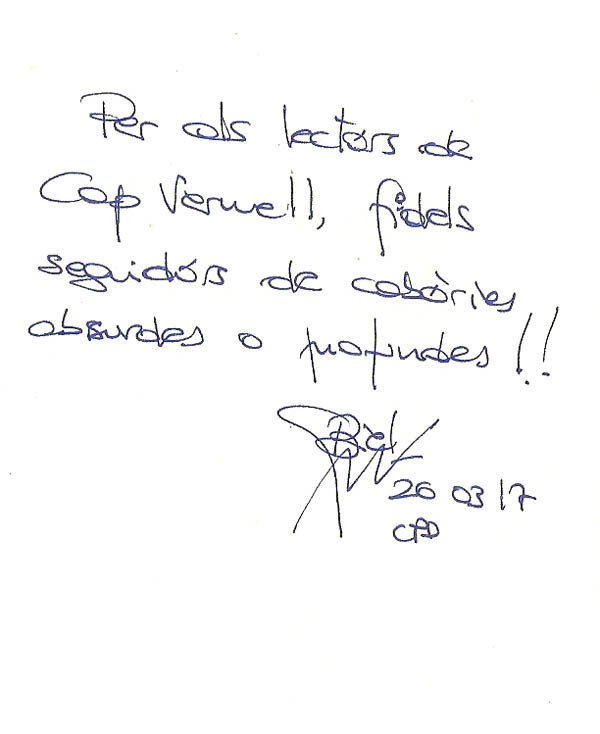 Per als lectors de
Cap Vermell, fidels
seguidors de cabòries
absurdes o profundes!!
Biel
26 03 17